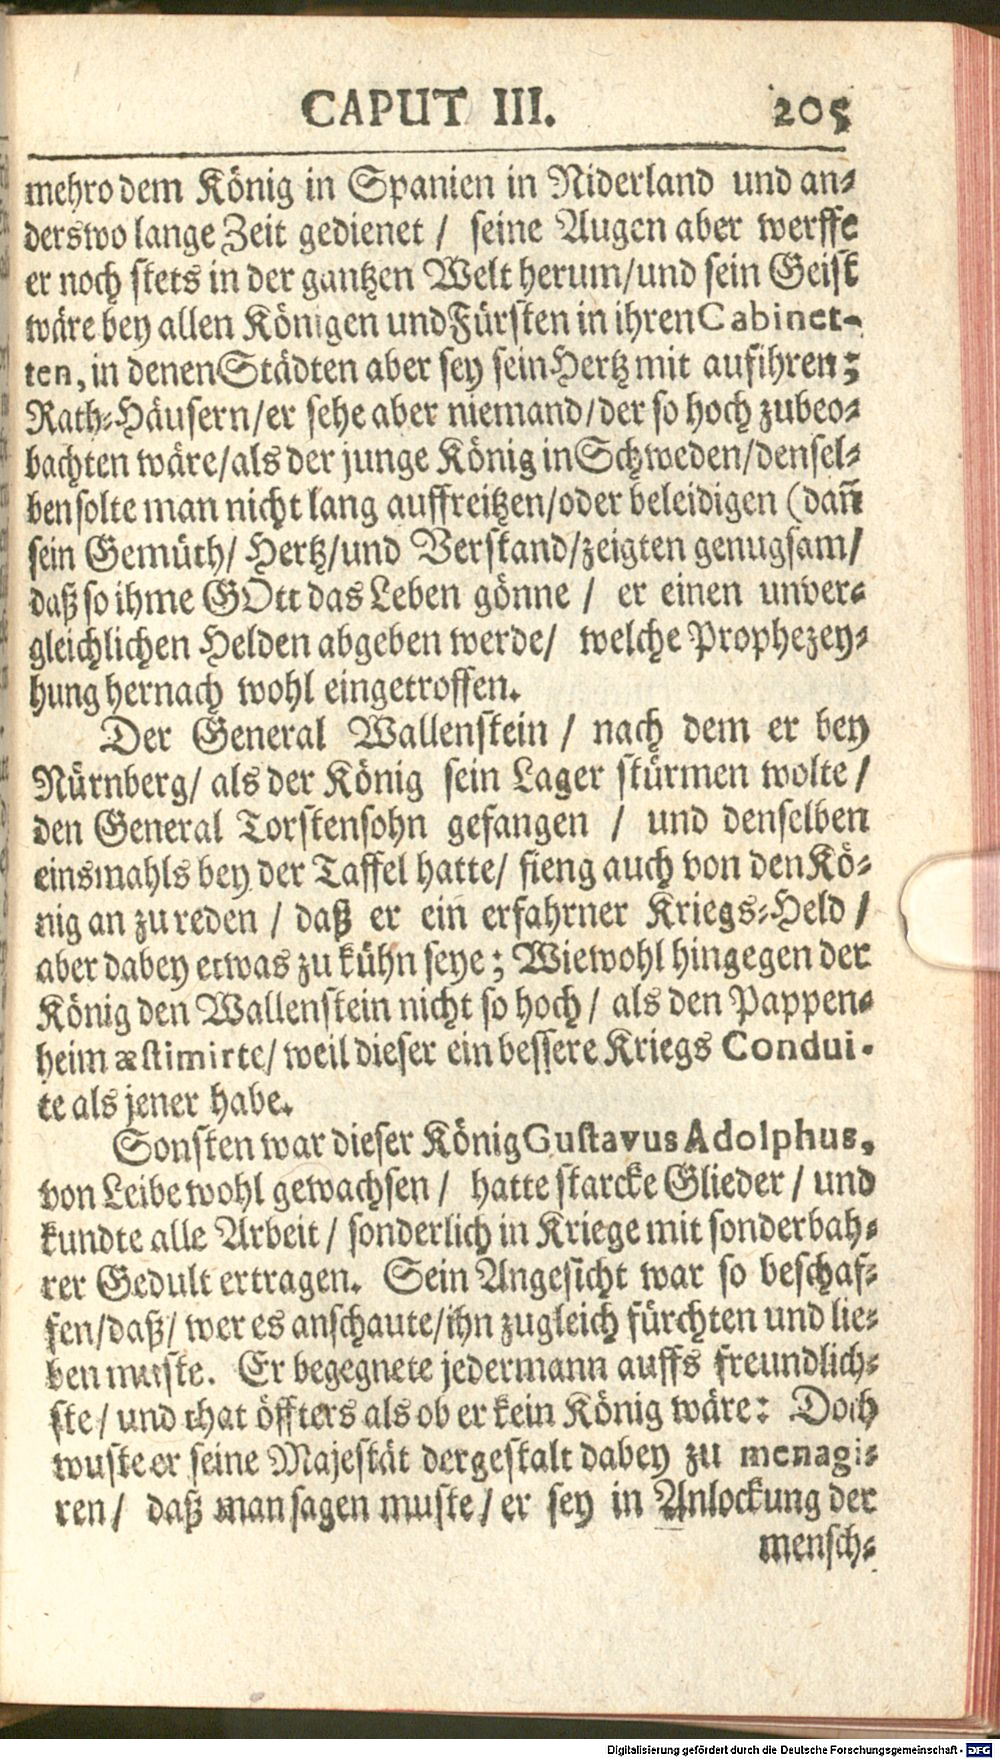 CAPUT III. 205
mehro dem König in Spanien in Niderland und an-
derswo lange Zeit gedienet / seine Augen aber werffe
er noch stets in der gantzen Welt herum/und sein Geist
wäre bey allen Königen und Fürsten in ihren Cabinet-
ten, in denen Städten aber sey sein Hertz mit auf ihren;
Rath-Häusern/er sehe aber niemand/der so hoch zubeo-
bachten wäre/als der junge König in Schweden/densel-
ben solte man nicht lang auffreitzen/oder beleidigen (dañ
sein Gemüth/ Hertz/und Verstand/zeigten genugsam/
daß so ihme GOtt das Leben gönne / er einen unver-
gleichlichen Helden abgeben werde/ welche Prophezey-
hung hernach wohl eingetroffen.
Der General Wallenstein / nach dem er bey
Nürnberg/ als der König sein Lager stürmen wolte /
den General Torstensohn gefangen / und denselben
einsmahls bey der Taffel hatte/ fieng auch von den Kö-
nig an zu reden / daß er ein erfahrner Kriegs-Held /
aber dabey etwas zu kühn seye; Wiewohl hingegen der
König den Wallenstein nicht so hoch / als den Pappen-
heim æstimirte/ weil dieser ein bessere Kriegs Condui-
te als jener habe.
Sonsten war dieser König Gustavus Adolphus,
von Leibe wohl gewachsen / hatte starcke Glieder / und
kundte alle Arbeit / sonderlich in Kriege mit sonderbah-
rer Gedult ertragen. Sein Angesicht war so beschaf-
fen/daß/ wer es anschaute/ihn zugleich fürchten und lie-
ben muste. Er begegnete jedermann auffs freundlich-
ste / und that öffters als ob er kein König wäre: Doch
wuste er seine Majestät dergestalt dabey zu menagi-
ren / daß man sagen muste / er sey in Anlockung der
mensch-
Digitalisierung gefördert durch die Deutsche Forschungsgemeinschaft - DFG